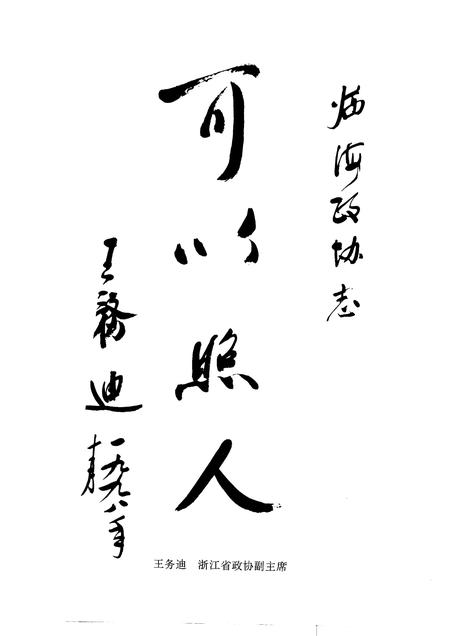 临海政协志
可以照人
王務迪
一九九八年春
王务迪 浙江省政协副主席